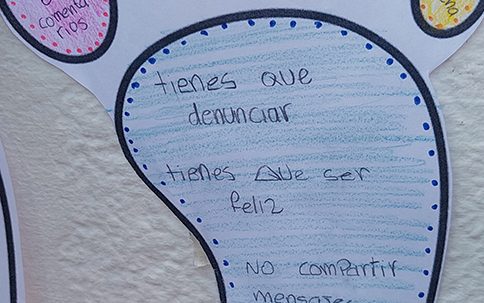 comenta
rios
tienes que
denunciar
tienes que ser
feliz
No compartir
mensaje